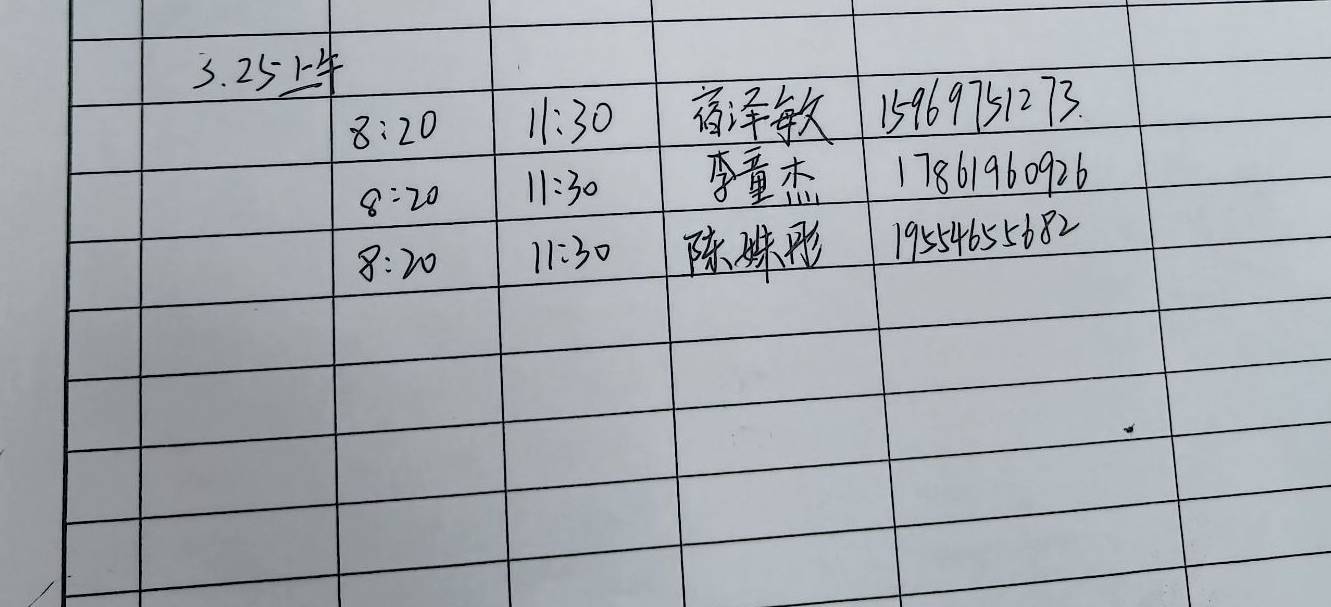 3.25上午
8:20 11:30 宿泽敏 15969751273.
8:20 11:30 李童杰 17861960926
8:20 11:30 陈姝彤 19554655682